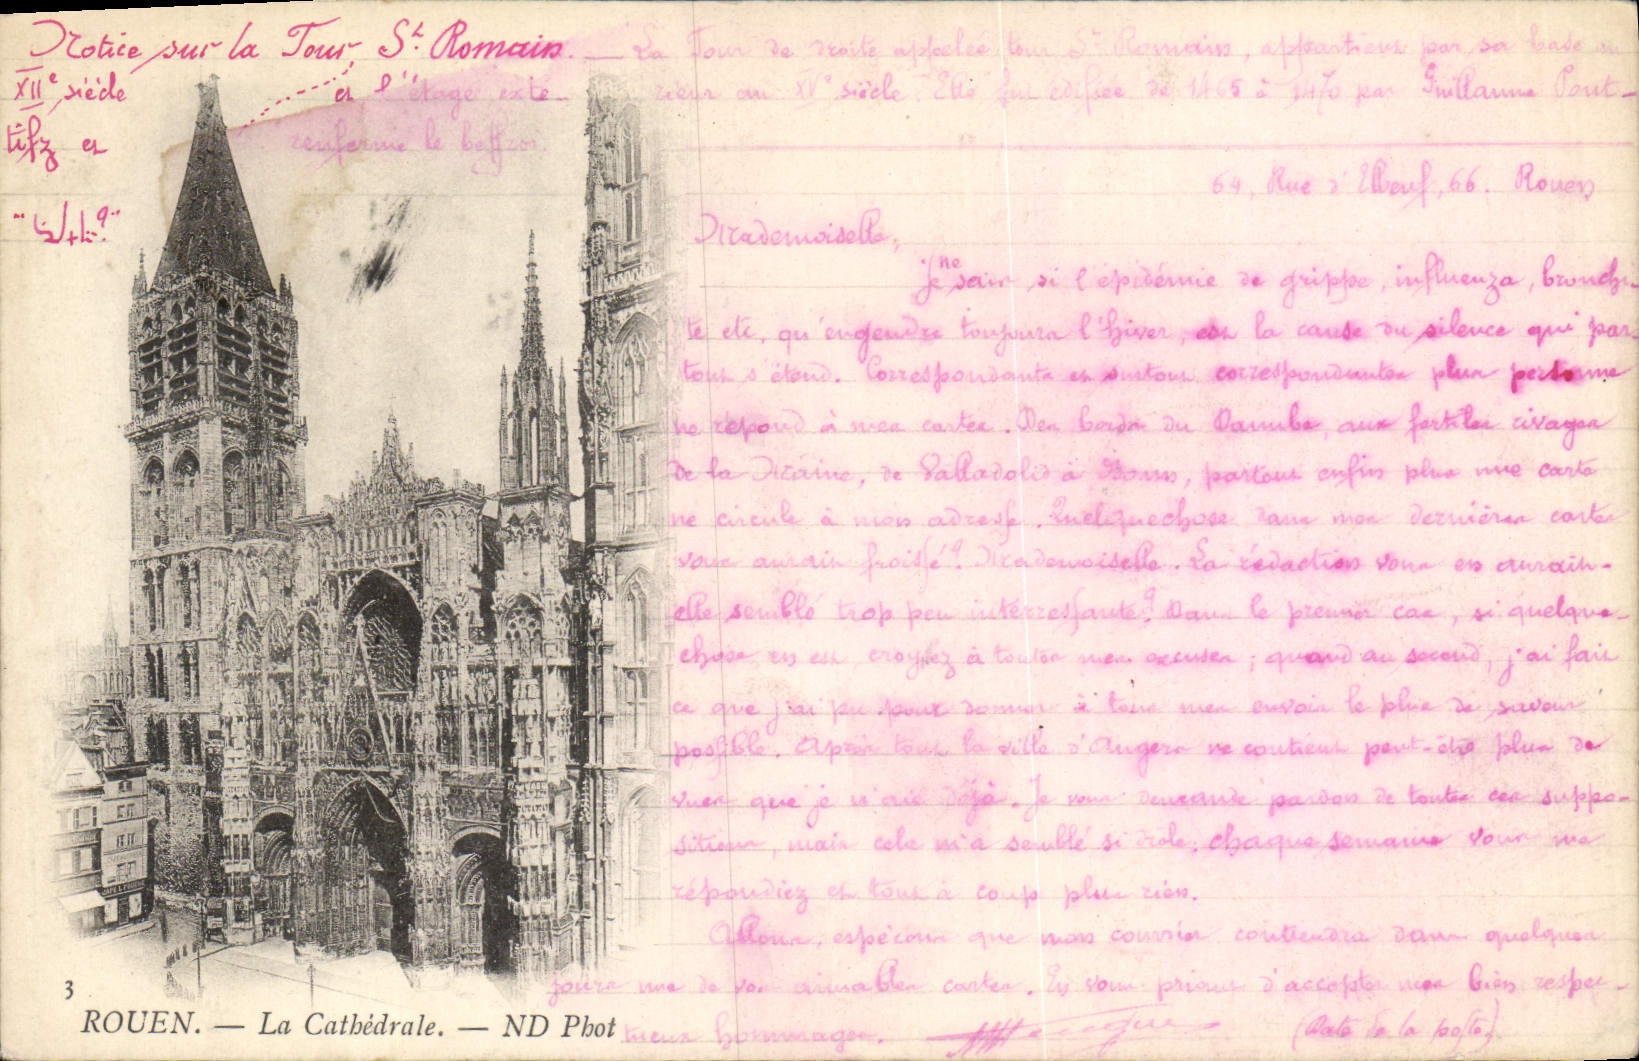 Notice sur la Tour St. Romain. — La Tour de droite appelée tour St Romain, appartient par sa base au
XIIe siècle et l'étage exté- rieur au XVe siècle. Elle fut édifiée de 1465 à 1470 par Guillaume Pont-
tifz et renferme le beffroi.
64, Rue d'Elbeuf, 66. Rouen
Mademoiselle,
Je ne sais si l'épidémie de grippe, influenza, bronchi-
te etc, qu'engendre toujours l'hiver, est la cause du silence qui par-
tout s'étend. Correspondants et surtout correspondantes plus personne
ne répond à mes cartes. Des bords du Danube, aux fertiles rivages
de la Maine, de Valladolid à Bonn, partout enfin plus une carte
ne circule à mon adresse. Quelquechose dans mes dernières cartes
vous aurait froissé? Mademoiselle. La rédaction vous en aurait-
elle semblé trop peu intérressante? Dans le premier cas, si quelque-
chose en est, croyez à toutes mes excuses; quand au second, j'ai fait
ce que j'ai pu pour donner à tous mes envois le plus de saveur
possible. Après tout la ville d'Angers ne contient peut-être plus de
vues que je n'aie déjà. Je vous demande pardon de toutes ces suppo-
sitions, mais cela m'a semblé si drôle; chaque semaine vous me
répondiez et tout à coup plus rien.
Allons, espérons que mon courrier contiendra dans quelques
jours une de vos aimables cartes. En vous priant d'accepter mes bien respec-
tueux hommages.
(Date de la poste)
3
ROUEN. — La Cathédrale. — ND Phot